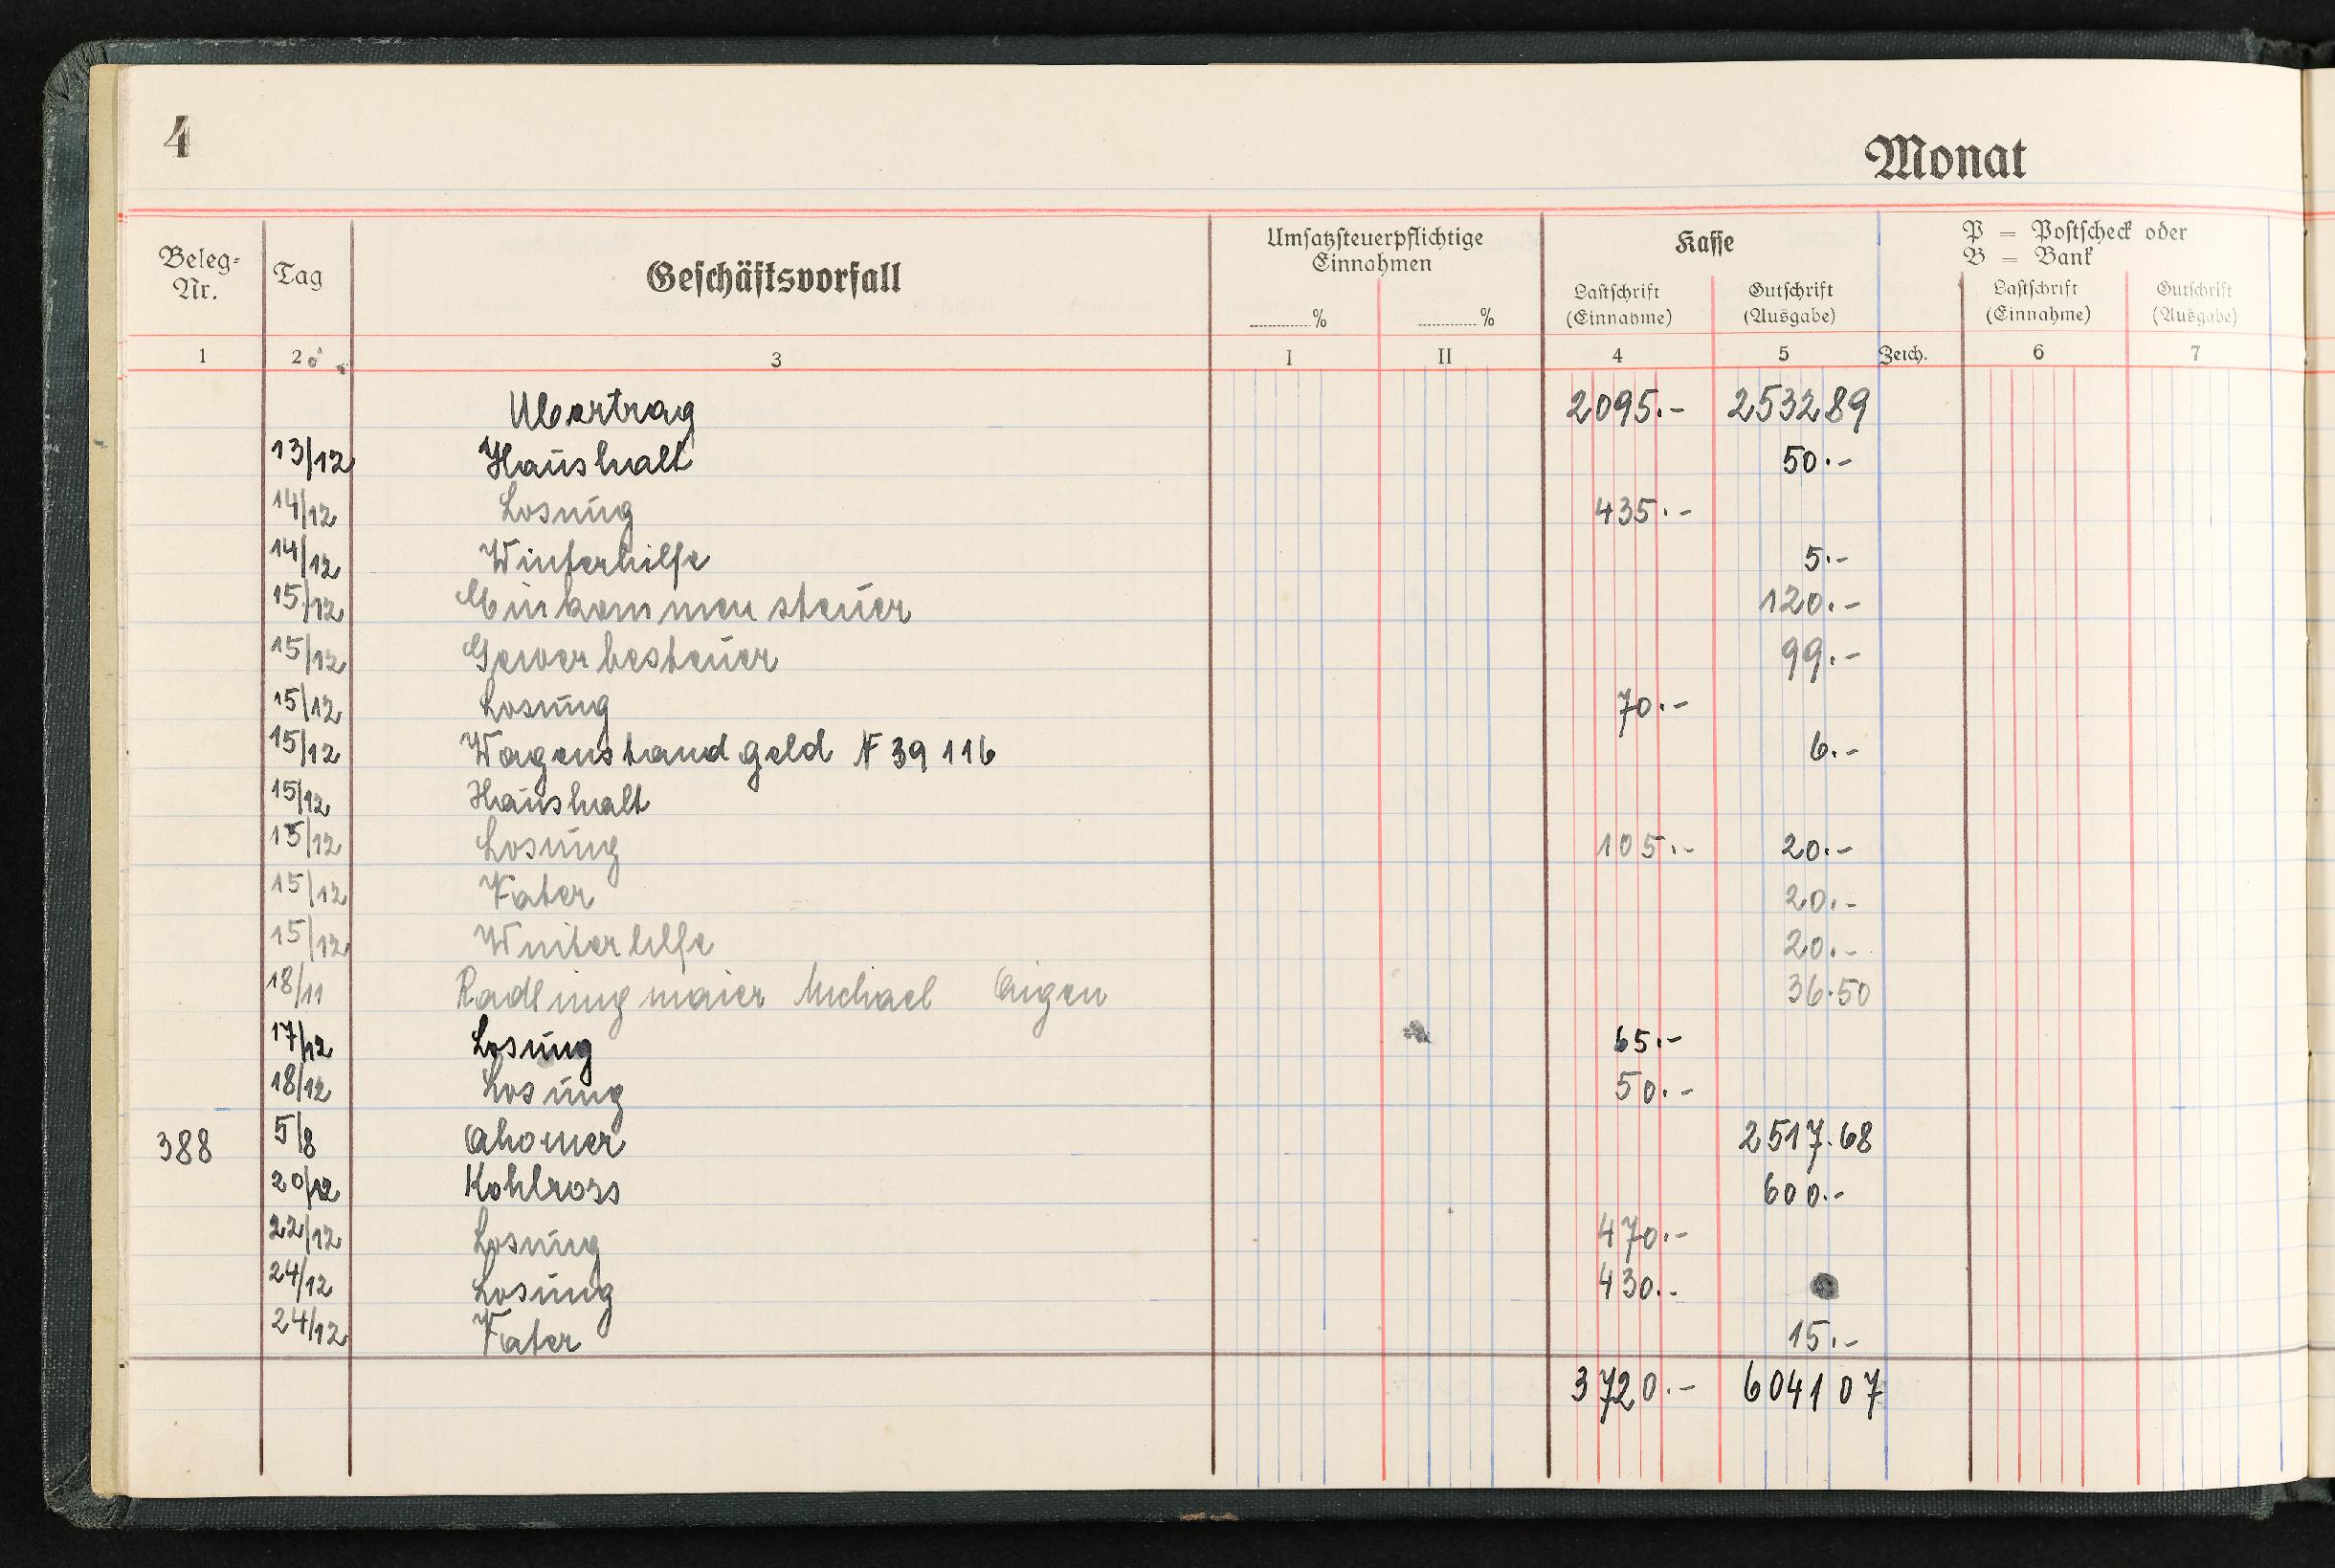 4
Monat
Beleg-Nr. Tag Geschäftsvorfall Umsatzsteuerpflichtige Einnahmen Kasse P = Postscheck oder B = Bank
% % Lastschrift (Einnahme) Gutschrift (Ausgabe) Lastschrift (Einnahme) Gutschrift (Ausgabe)
1 2 3 I II 4 5 Zeich. 6 7
Übertrag 2095.- 253289
13/12 Haushalt 50.-
14/12 Losung 435.-
14/12 Winterhilfe 5.-
15/12 Einkommensteuer 120.-
15/12 Gewerbesteuer 99.-
15/12 Losung 70.-
15/12 Wagenstandgeld F 39 116 6.-
15/12 Haushalt
15/12 Losung 105.- 20.-
15/12 Vater 20.-
15/12 Winterhilfe 20.-
18/11 Radlingmaier Michael Aigen 36.50
17/12 Losung 65.-
18/12 Losung 50.-
388 5/8 Ahorner 2517.68
20/12 Kohlross 600.-
22/12 Losung 470.-
24/12 Losung 430.-
24/12 Vater 15.-
3720.- 604107